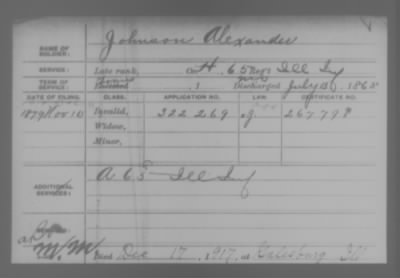 NAME OF SOLDIER: Johnson Alexander
SERVICE: Late rank, Co. H, 65 Reg't Ill Inf
TERM OF SERVICE: Enlisted , 1 Discharged July 13, 1865
DATE OF FILING. CLASS. APPLICATION NO. LAW. CERTIFICATE NO.
1879 Nov 10 Invalid, 322 269 267.798
Widow,
Minor,
ADDITIONAL SERVICES: A 65 Ill Inf
Died Dec 17, 1917, at Galesburg Ill